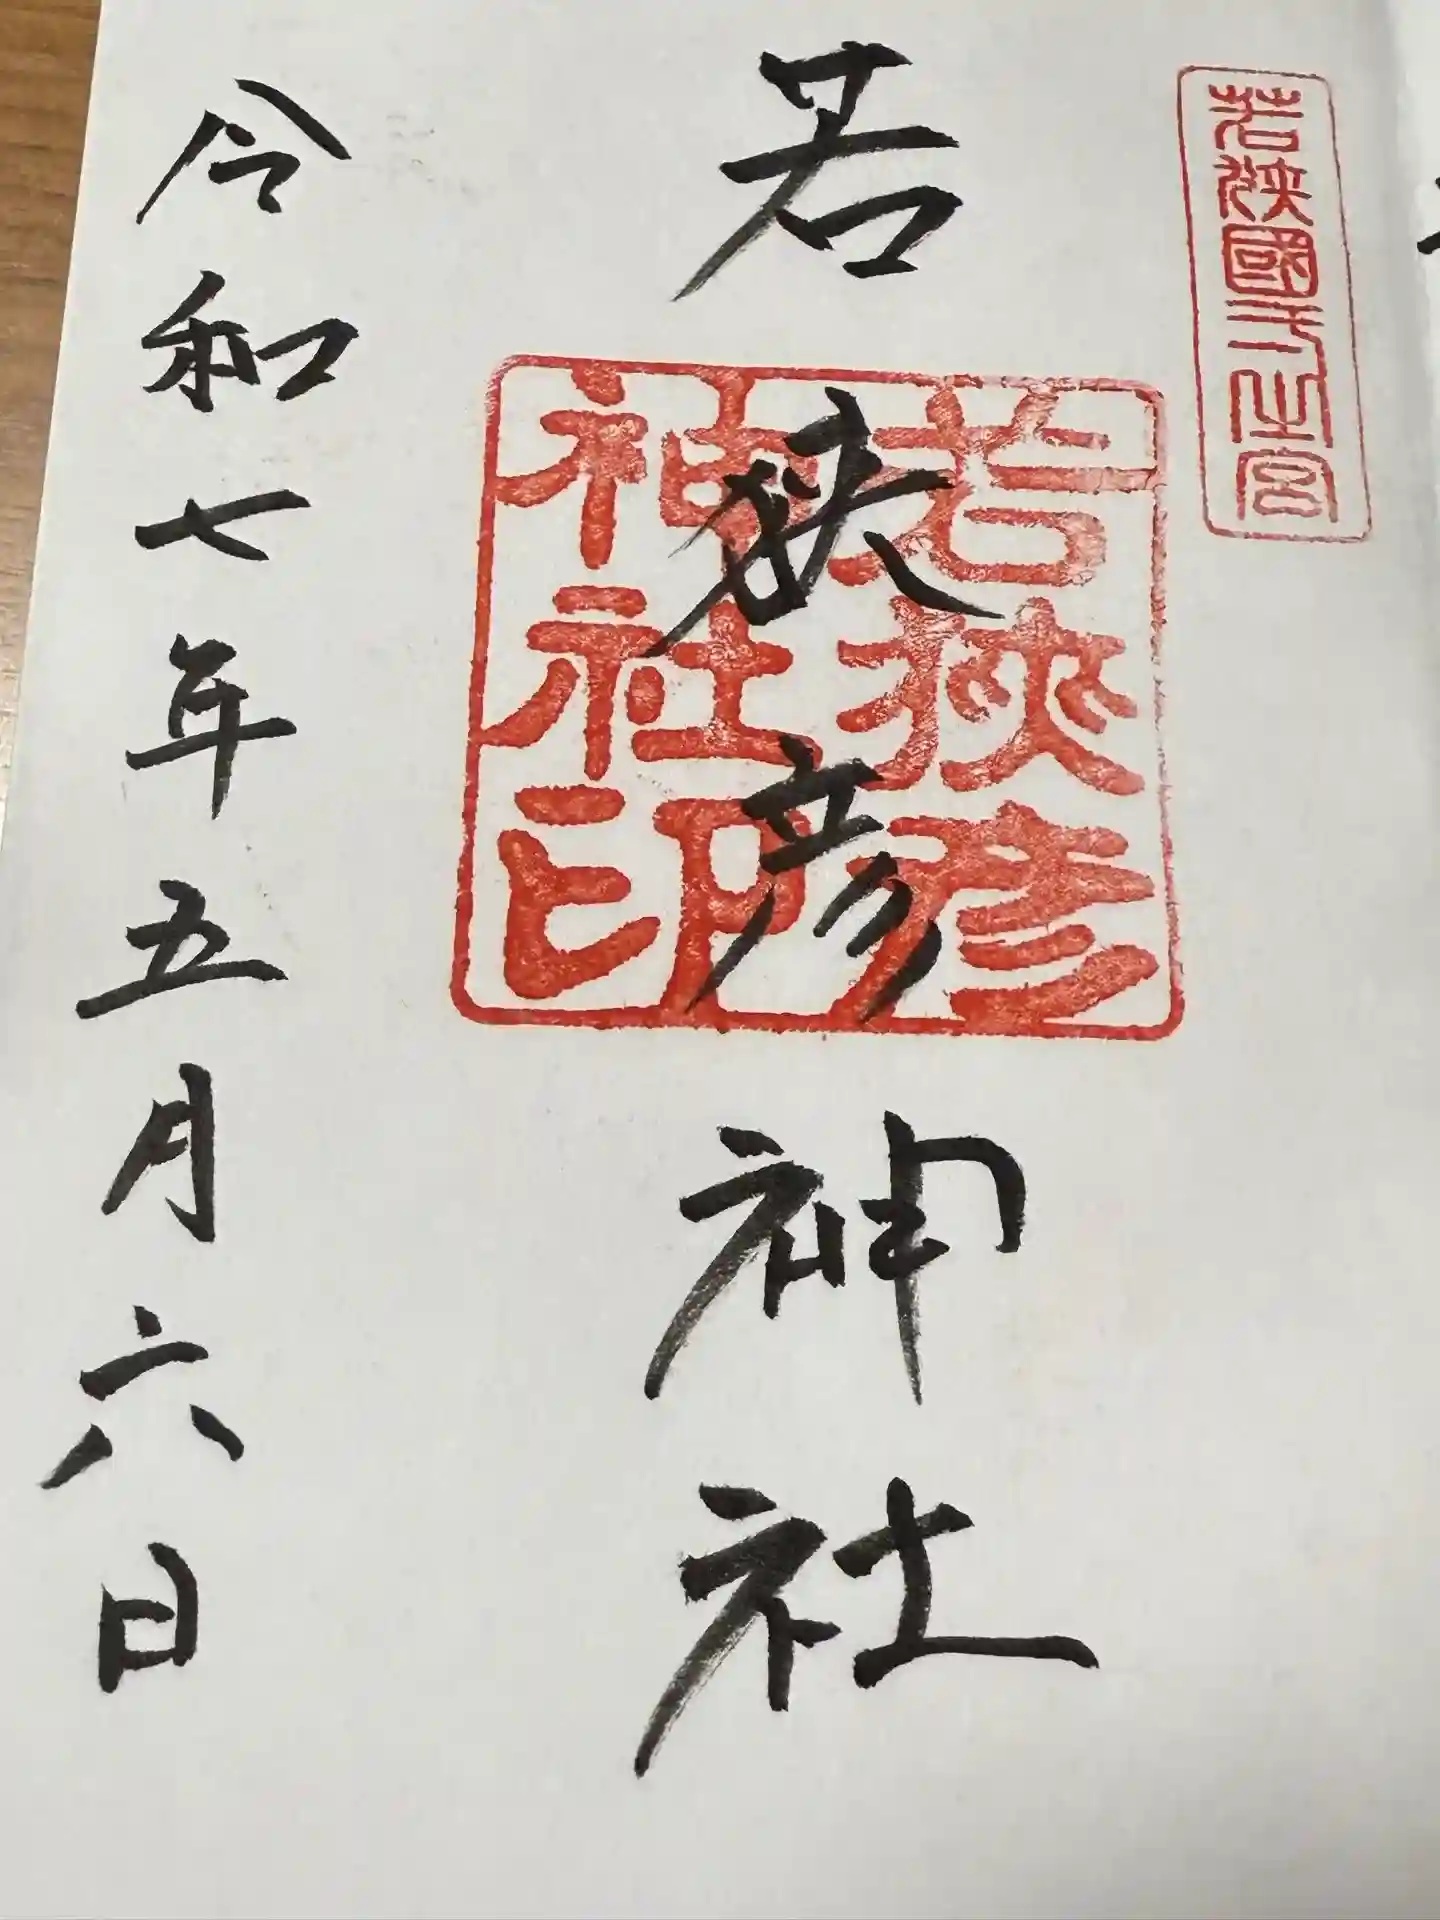 若狭國一之宮
若狭彦神社
若狭彦
神社印
令和七年五月六日